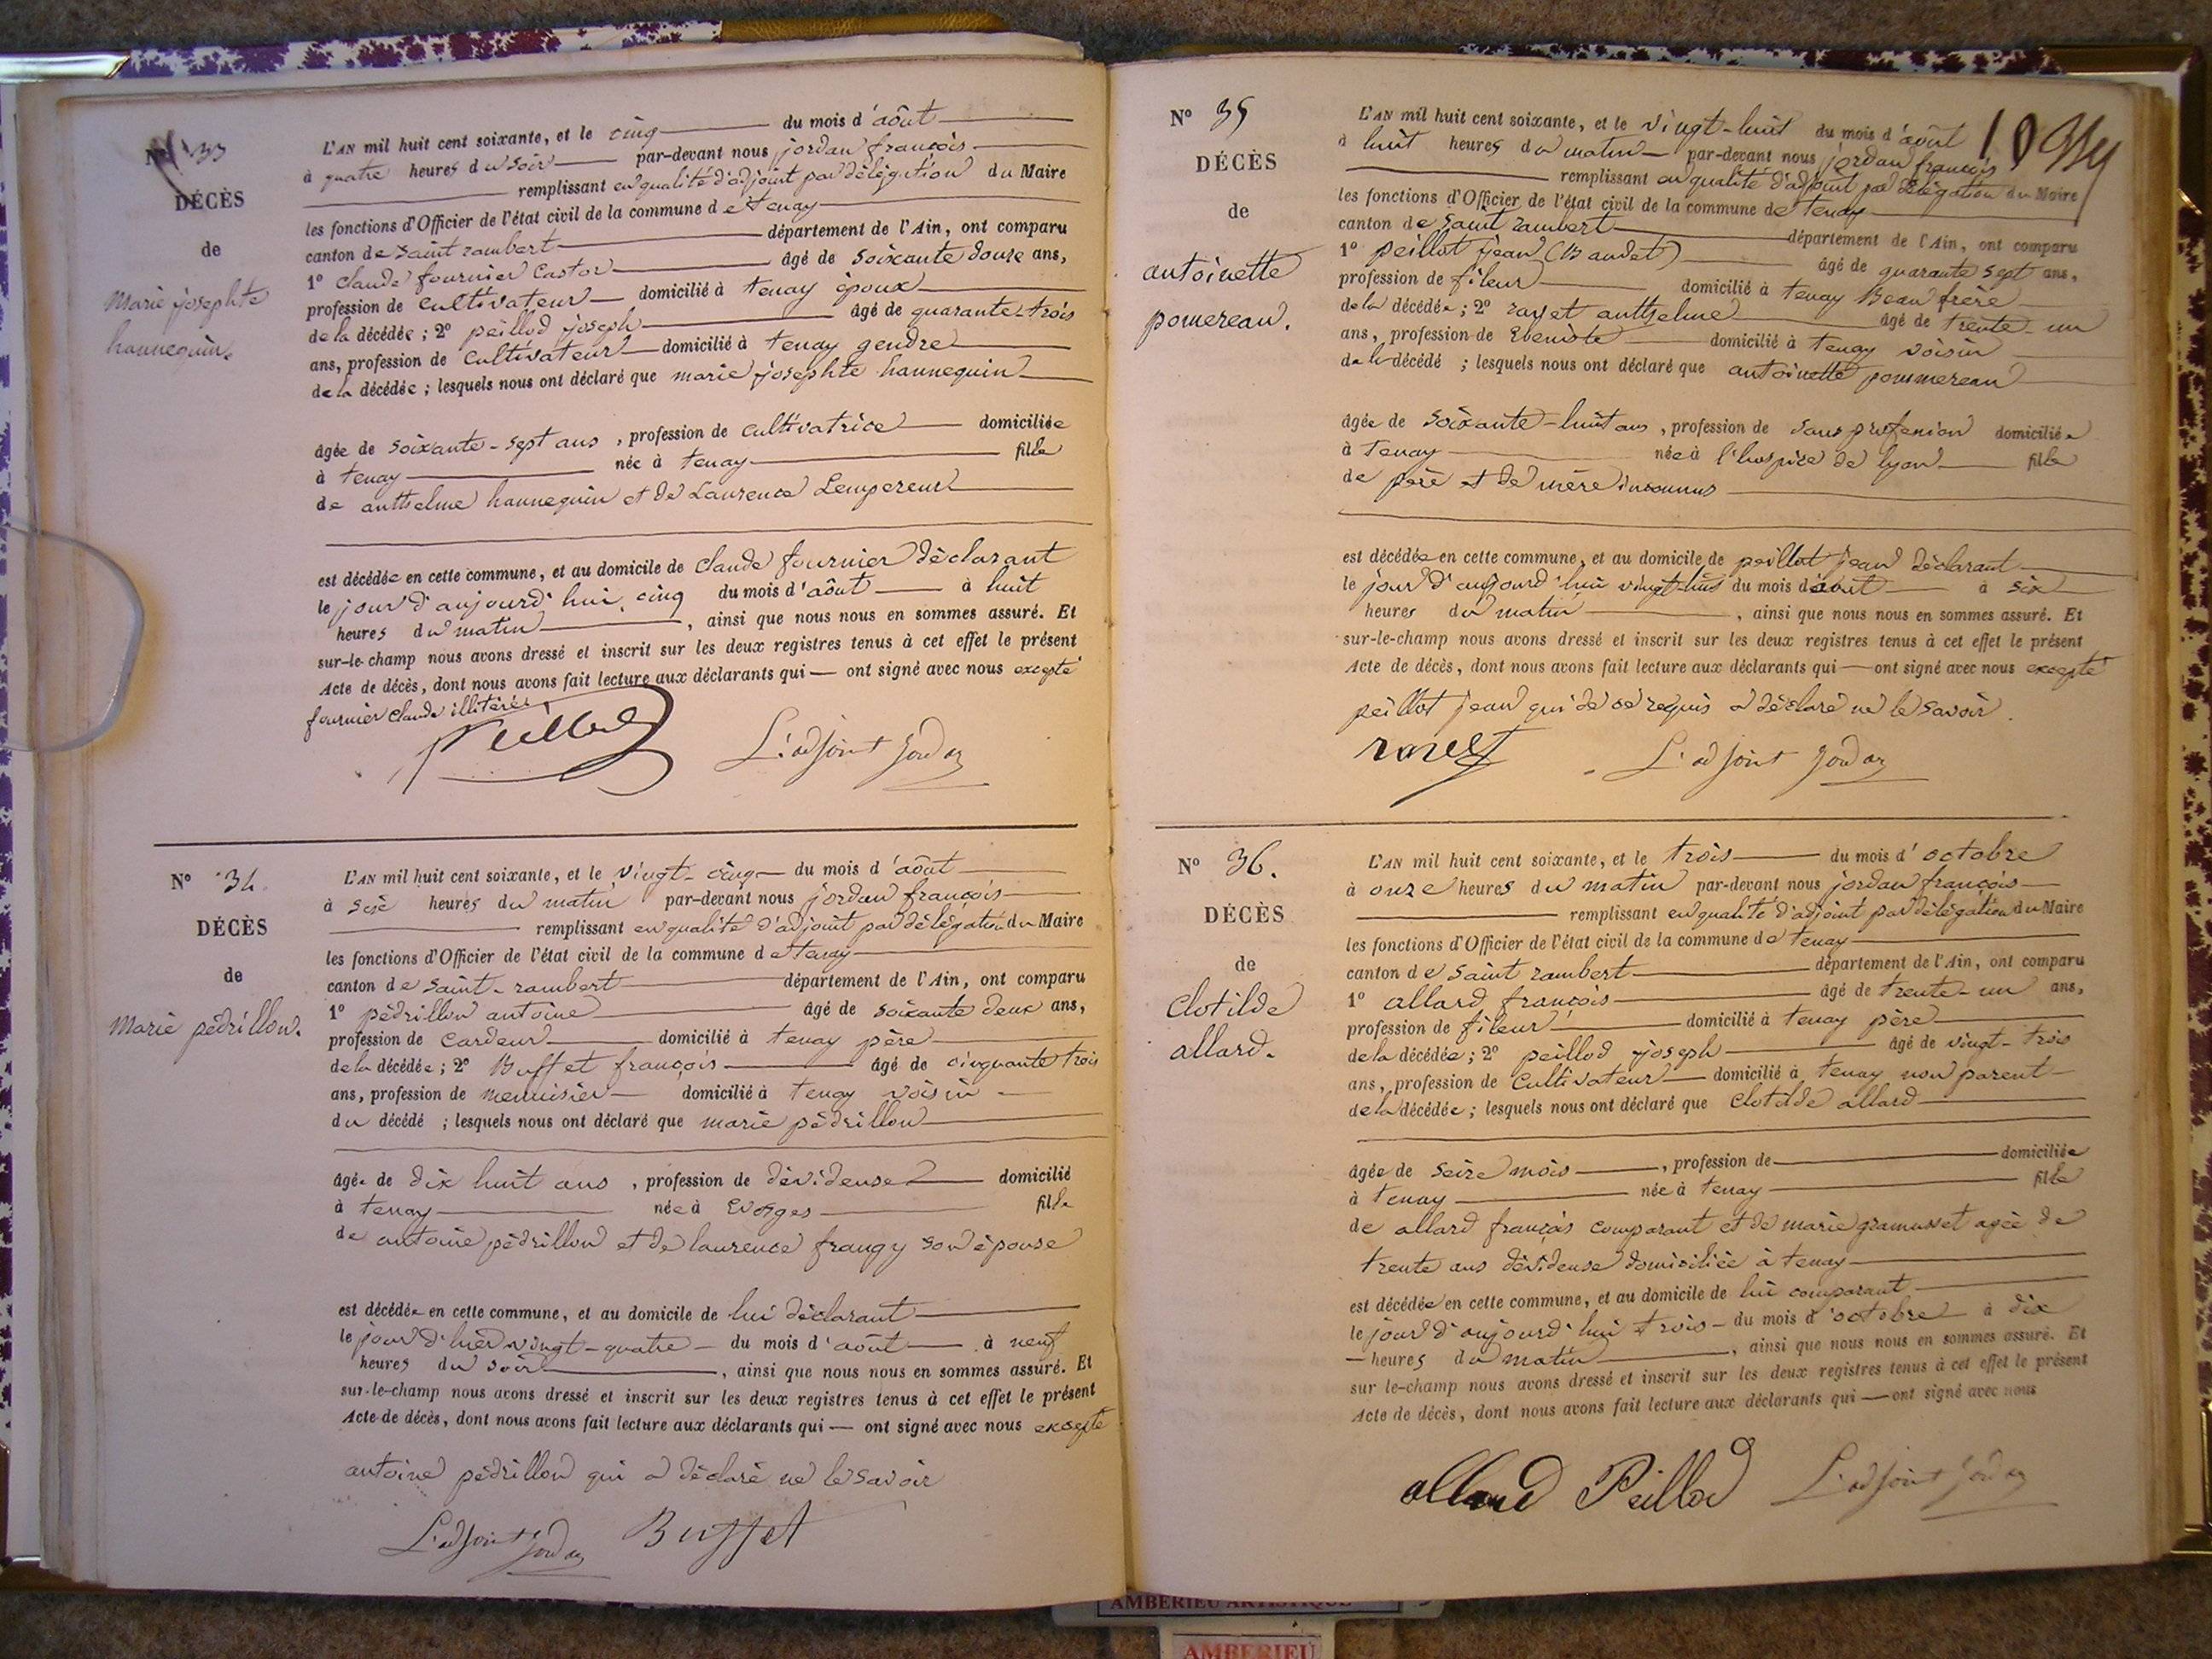 N° 33
DÉCÈS
de
Marie josephte
hannequin.
L'AN mil huit cent soixante, et le cinq du mois d'août
à quatre heures du soir par-devant nous jordan françois
remplissant en qualité d'adjoint par délégation du Maire
les fonctions d'Officier de l'état civil de la commune de tenay
canton de saint rambert département de l'Ain, ont comparu
1° claude fournier Castor âgé de soixante douze ans,
profession de cultivateur domicilié à tenay époux
de la décédée ; 2° peillod joseph âgé de quarante trois
ans, profession de cultivateur domicilié à tenay gendre
de la décédée ; lesquels nous ont déclaré que marie josephte hannequin
âgée de soixante-sept ans, profession de cultivatrice domiciliée
à tenay née à tenay fille
de anthelme hannequin et de Laurence Lempereur
est décédée en cette commune, et au domicile de claude fournier déclarant
le jour d'aujourd'hui cinq du mois d'août à huit
heures du matin, ainsi que nous nous en sommes assuré. Et
sur-le-champ nous avons dressé et inscrit sur les deux registres tenus à cet effet le présent
Acte de décès, dont nous avons fait lecture aux déclarants qui ont signé avec nous excepté
fournier claude illitéré
Peillod L'adjoint Jordan
N° 34.
DÉCÈS
de
Marie pédrillon.
L'AN mil huit cent soixante, et le vingt-cinq du mois d'août
à six heures du matin par-devant nous jordan françois
remplissant en qualité d'adjoint par délégation du Maire
les fonctions d'Officier de l'état civil de la commune de tenay
canton de saint-rambert département de l'Ain, ont comparu
1° pédrillon antoine âgé de soixante deux ans,
profession de cardeur domicilié à tenay père
de la décédée ; 2° Buffet françois âgé de cinquante trois
ans, profession de menuisier domicilié à tenay voisin
du décédé ; lesquels nous ont déclaré que marie pédrillon
âgée de dix huit ans, profession de dévideuse domicilié
à tenay née à Evosges fille
de antoine pédrillon et de laurence frangy son épouse
est décédée en cette commune, et au domicile de lui déclarant
le jour d'hier vingt-quatre du mois d'août à neuf
heures du soir, ainsi que nous nous en sommes assuré. Et
sur-le-champ nous avons dressé et inscrit sur les deux registres tenus à cet effet le présent
Acte de décès, dont nous avons fait lecture aux déclarants qui ont signé avec nous excepté
antoine pédrillon qui a déclaré ne le savoir
L'adjoint Jordan Buffet
N° 35
DÉCÈS
de
antoinette
pomereau.
L'AN mil huit cent soixante, et le vingt-huit du mois d'août
à huit heures du matin par-devant nous jordan françois
remplissant en qualité d'adjoint par délégation du Maire
les fonctions d'Officier de l'état civil de la commune de tenay
canton de saint rambert département de l'Ain, ont comparu
1° peillot jean (Baudet) âgé de quarante sept ans,
profession de fileur domicilié à tenay Beau frère
de la décédée ; 2° rayet anthelme âgé de trente-un
ans, profession de Ebeniste domicilié à tenay voisin
de la décédé ; lesquels nous ont déclaré que antoinette pommereau
âgée de soixante-huit ans, profession de sans profession domiciliée
à tenay née à l'hospice de lyon fille
de père et de mère inconnus
est décédée en cette commune, et au domicile de peillot jean déclarant
le jour d'aujourd'hui vingt-huit du mois d'août à six
heures du matin, ainsi que nous nous en sommes assuré. Et
sur-le-champ nous avons dressé et inscrit sur les deux registres tenus à cet effet le présent
Acte de décès, dont nous avons fait lecture aux déclarants qui ont signé avec nous excepté
peillot jean qui de ce requis a déclaré ne le savoir.
L'adjoint Jordan
N° 36.
DÉCÈS
de
Clotilde
allard.
L'AN mil huit cent soixante, et le trois du mois d'octobre
à onze heures du matin par-devant nous jordan françois
remplissant en qualité d'adjoint par délégation du Maire
les fonctions d'Officier de l'état civil de la commune de tenay
canton de saint rambert département de l'Ain, ont comparu
1° allard françois âgé de trente-un ans,
profession de fileur domicilié à tenay père
de la décédée ; 2° peillod joseph âgé de vingt-trois
ans, profession de cultivateur domicilié à tenay non parent
de la décédée ; lesquels nous ont déclaré que Clotilde allard
âgée de seize mois, profession de domiciliée
à tenay née à tenay fille
de allard françois comparant et de marie gramusset agée de
trente ans dévideuse domiciliée à tenay
est décédée en cette commune, et au domicile de lui comparant
le jour d'aujourd'hui trois du mois d'octobre à dix
heures du matin, ainsi que nous nous en sommes assuré. Et
sur le-champ nous avons dressé et inscrit sur les deux registres tenus à cet effet le présent
Acte de décès, dont nous avons fait lecture aux déclarants qui ont signé avec nous
allard Peillod L'adjoint Jordan
AMBERIEU ARTISTIQUE
AMBERIEU